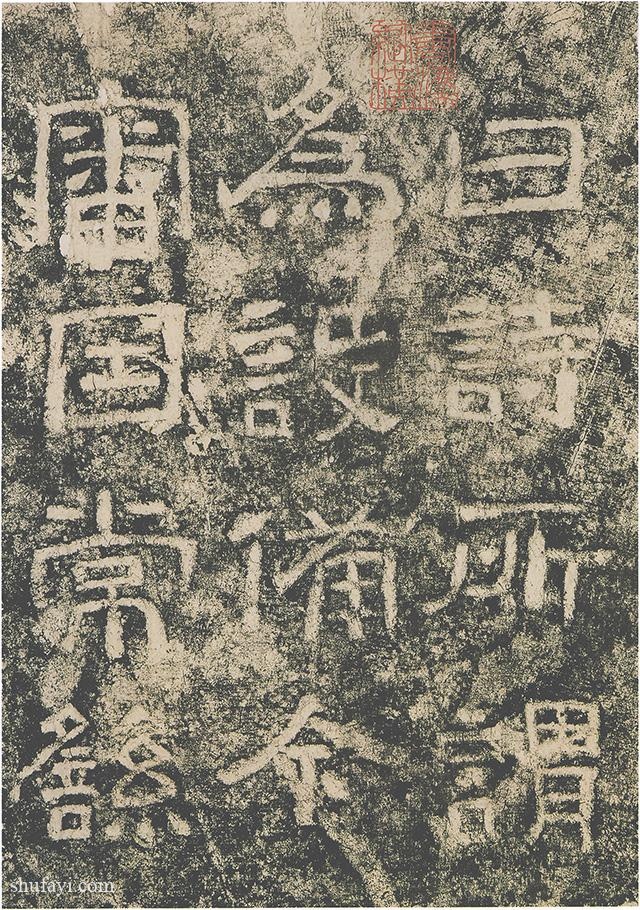 曰詩所謂
為設備今
審因常繇
shufayi.com